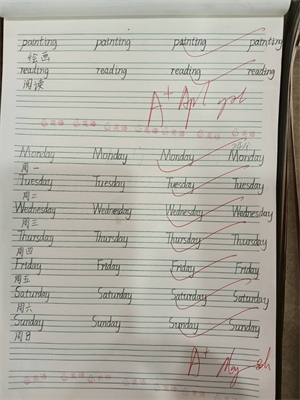 painting painting painting painting
绘画
reading reading reading reading
阅读
A+
Monday Monday Monday Monday
周一
Tuesday Tuesday Tuesday Tuesday
周二
Wednesday Wednesday Wednesday Wednesday
周三
Thursday Thursday Thursday Thursday
周四
Friday Friday Friday Friday
周五
Saturday Saturday Saturday Saturday
周六
Sunday Sunday Sunday Sunday
周日
A+